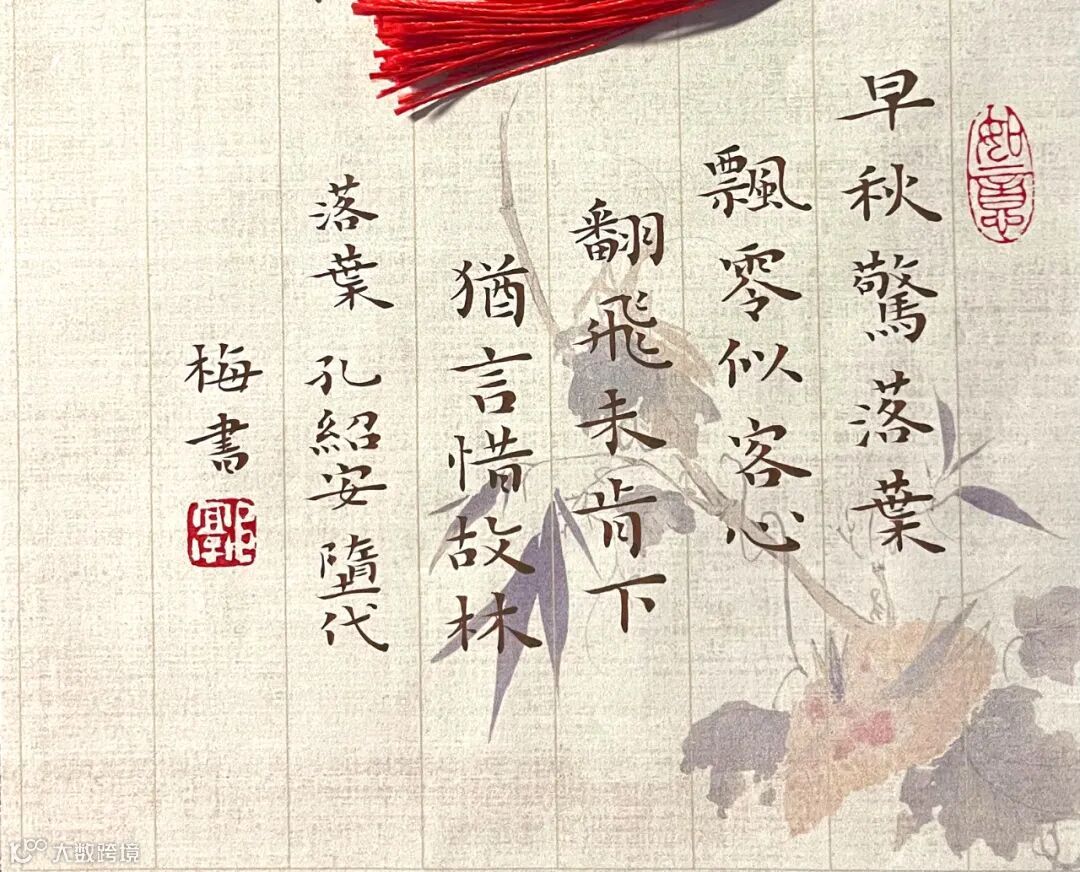 如意
早秋驚落葉
飄零似客心
翻飛未肯下
猶言惜故林
落葉 孔紹安 墮代
梅書
大数跨境